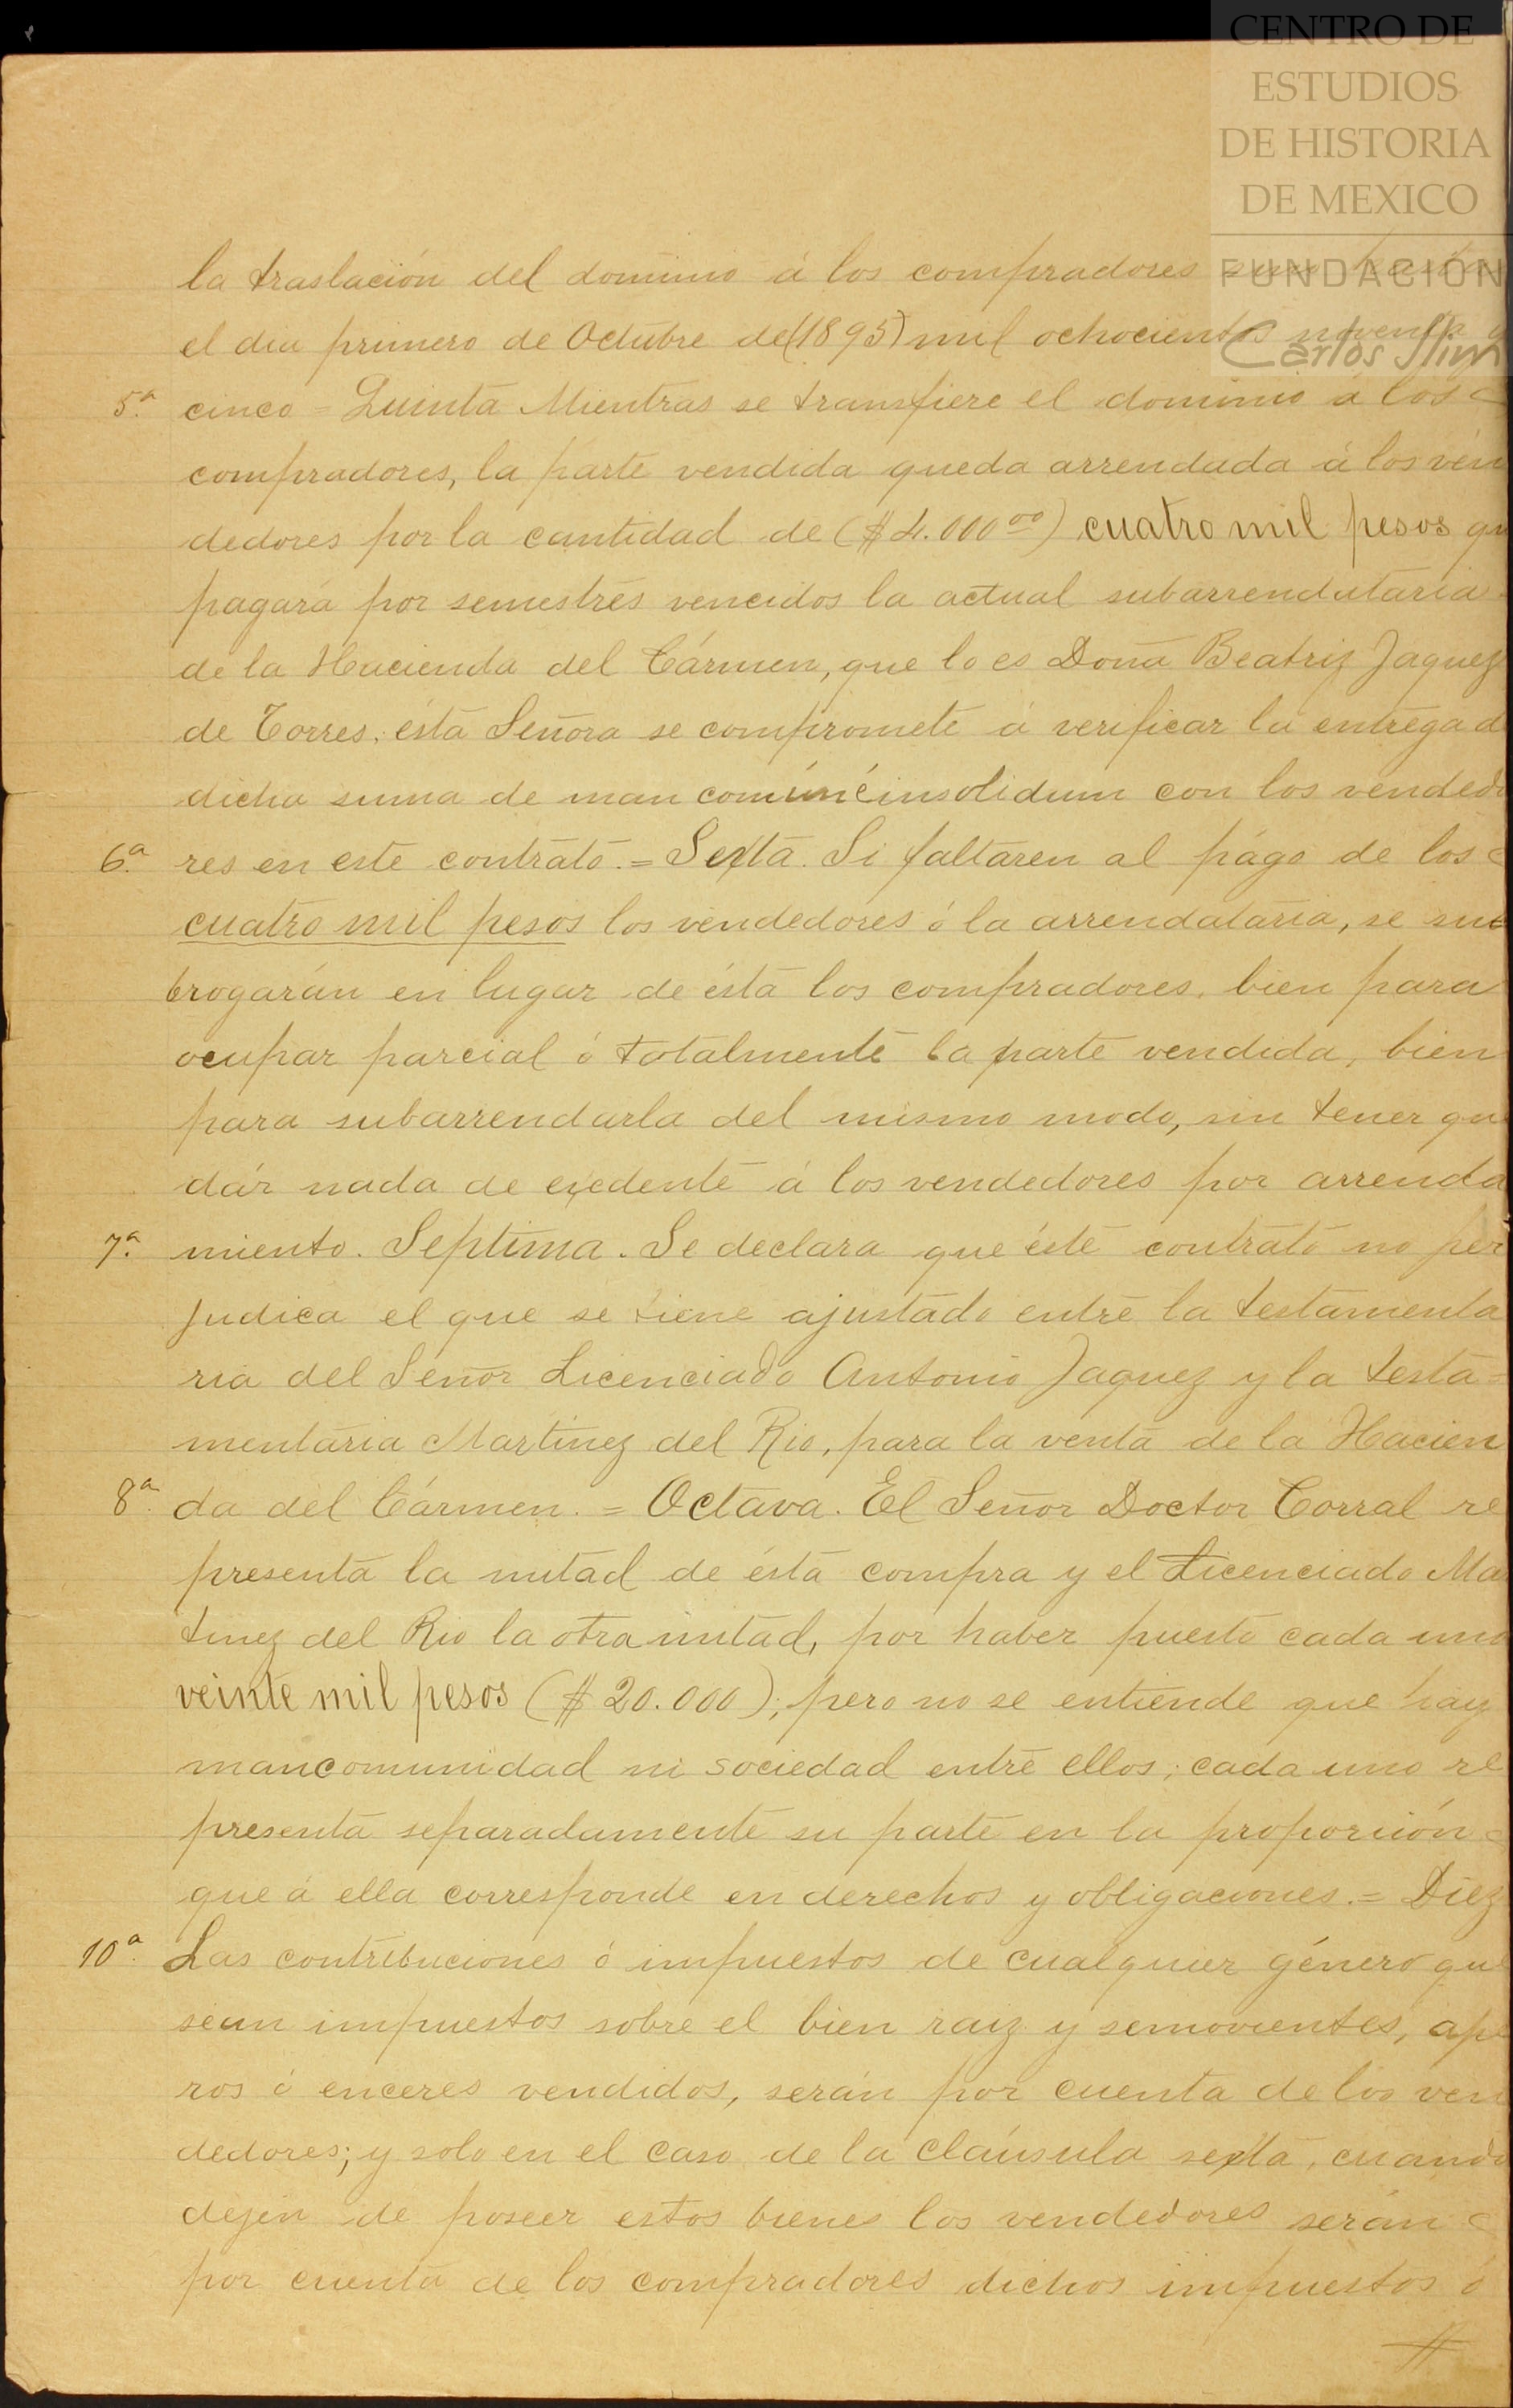 CENTRO DE
ESTUDIOS
DE HISTORIA
DE MEXICO
FUNDACIÓN
Carlos Slim
la traslación del dominio á los compradores
el dia primero de Octubre de (1895) mil ochocientos noventa y
5.ª cinco = Quinta Mientras se transfiere el dominio á los
compradores, la parte vendida queda arrendada á los ven
dedores por la cantidad de ($4.000 00) cuatro mil pesos qu
pagará por semestres vencidos la actual subarrendataria
de la Hacienda del Cármen, que lo es Doña Beatriz Jaquez
de Torres; ésta Señora se compromete á verificar la entrega d
dicha suma de man comúné insolidum con los vendedo
6.ª res en este contrato. = Sexta. Si faltaren al págo de los
cuatro mil pesos los vendedores ó la arrendataria, se sub
brogarán en lugar de ésta los compradores, bien para
ocupar parcial ó totalmente la parte vendida, bien
para subarrendarla del mismo modo, sin tener que
dár nada de exedente á los vendedores por arrenda
7.ª miento. Septima. Se declara que éste contrato no per
judica el que se tiene ajustado entre la testamenta
ria del Señor Licenciado Antonio Jaquez y la testa=
mentaria Martinez del Rio, para la venta de la Hacien
8.ª da del Cármen. = Octava. El Señor Doctor Corral re
presenta la mitad de ésta compra y el Licenciado Mar
tinez del Rio la otra mitad, por haber puesto cada uno
veinte mil pesos ($20.000); pero no se entiende que hay
mancomunidad ni sociedad entre ellos; cada uno re
presenta separadamente su parte en la proporción
que á ella corresponde en derechos y obligaciones. = Diez
10.ª Las contribuciones ó impuestos de cualquier género que
sean impuestos sobre el bien raiz y semovientes, ape
ros ó enceres vendidos, serán por cuenta de los ven
dedores; y solo en el caso de la cláusula sexta, cuando
dejen de poseer estos bienes los vendedores serán
por cuenta de los compradores dichos impuestos ó